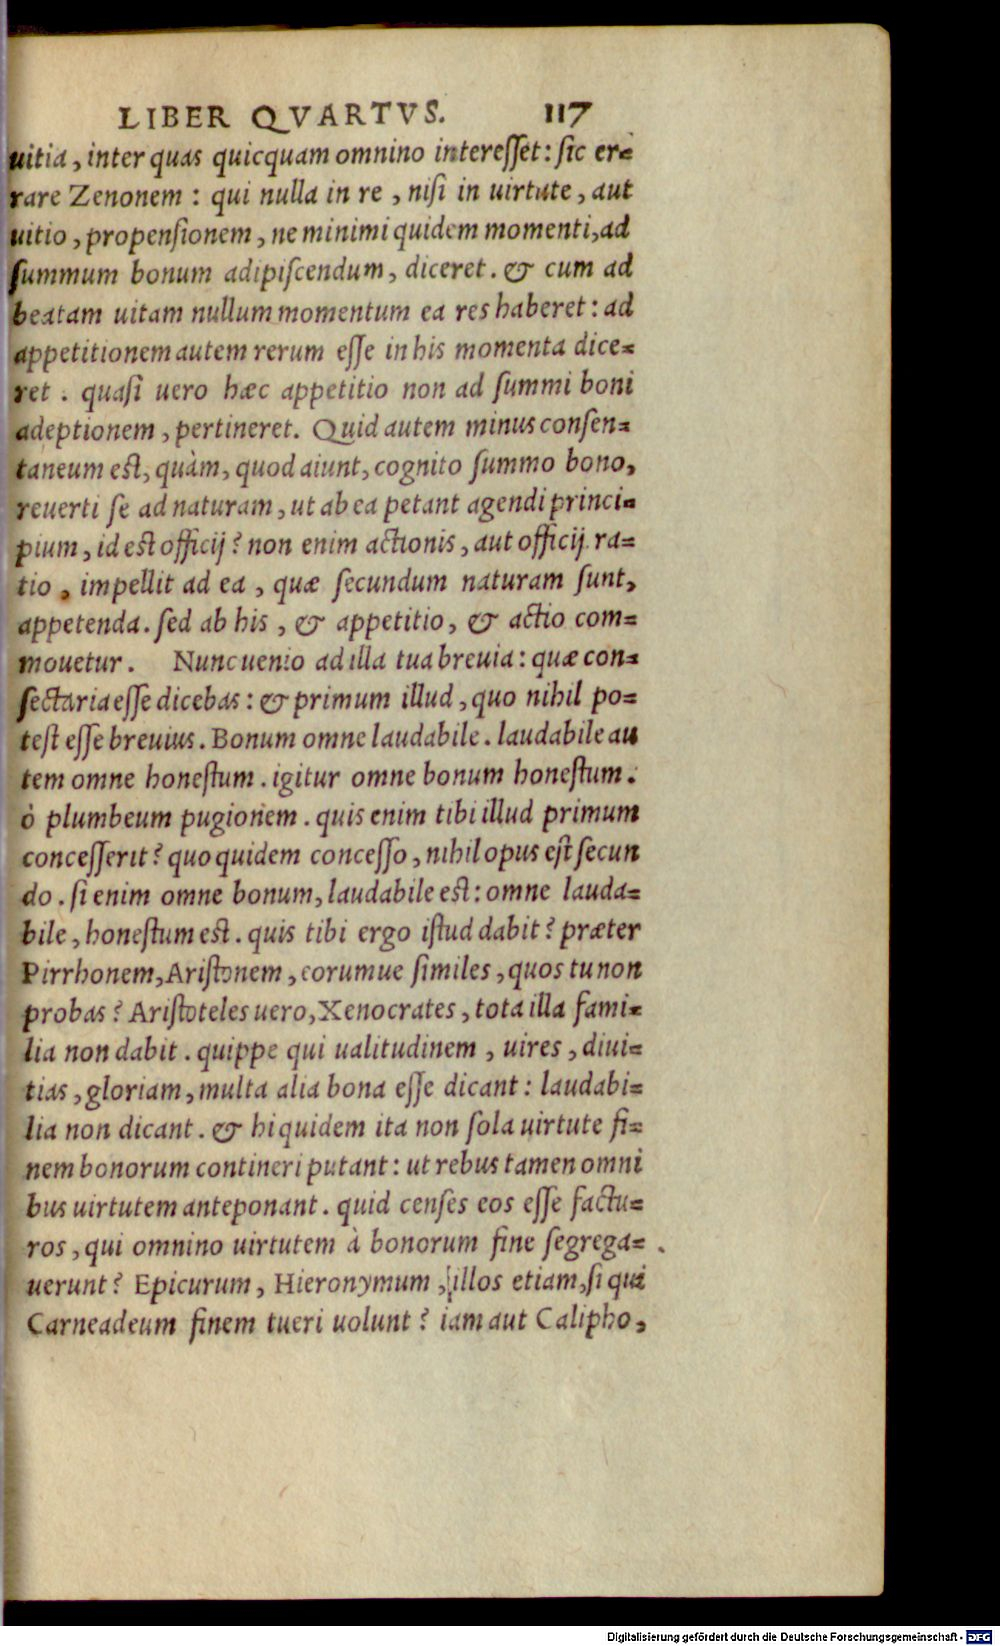 LIBER QVARTVS. 117
uitia, inter quas quicquam omnino interesset: sic er=
rare Zenonem: qui nulla in re, nisi in uirtute, aut
uitio, propensionem, ne minimi quidem momenti, ad
summum bonum adipiscendum, diceret. & cum ad
beatam uitam nullum momentum ea res haberet: ad
appetitionem autem rerum esse in his momenta dice=
ret. quasi uero hæc appetitio non ad summi boni
adeptionem, pertineret. Quid autem minus consen=
taneum est, quàm, quod aiunt, cognito summo bono,
reuerti se ad naturam, ut ab ea petant agendi princi=
pium, id est officij? non enim actionis, aut officij ra=
tio, impellit ad ea, quæ secundum naturam sunt,
appetenda. sed ab his, & appetitio, & actio com=
mouetur. Nunc uenio ad illa tua breuia: quæ con=
sectaria esse dicebas: & primum illud, quo nihil po=
test esse breuius. Bonum omne laudabile. laudabile au
tem omne honestum. igitur omne bonum honestum.
ò plumbeum pugionem. quis enim tibi illud primum
concesserit? quo quidem concesso, nihil opus est secun
do. si enim omne bonum, laudabile est: omne lauda=
bile, honestum est. quis tibi ergo istud dabit? præter
Pirrhonem, Aristonem, eorumue similes, quos tu non
probas? Aristoteles uero, Xenocrates, tota illa fami=
lia non dabit. quippe qui ualitudinem, uires, diui=
tias, gloriam, multa alia bona esse dicant: laudabi=
lia non dicant. & hi quidem ita non sola uirtute fi=
nem bonorum contineri putant: ut rebus tamen omni
bus uirtutem anteponant. quid censes eos esse factu=
ros, qui omnino uirtutem à bonorum fine segrega=
uerunt? Epicurum, Hieronymum, illos etiam, si qui
Carneadeum finem tueri uolunt? iam aut Calipho,
Digitalisierung gefördert durch die Deutsche Forschungsgemeinschaft - DFG